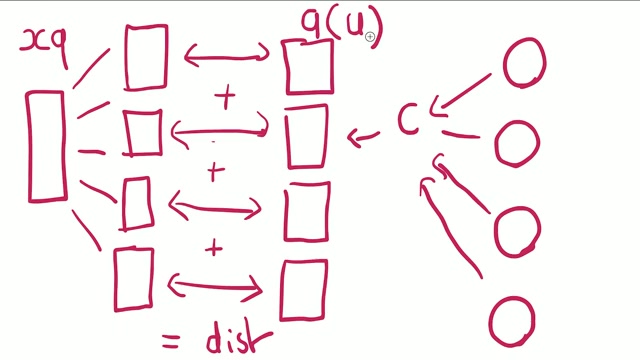 xq
q(u)
+
C
+
+
= dist